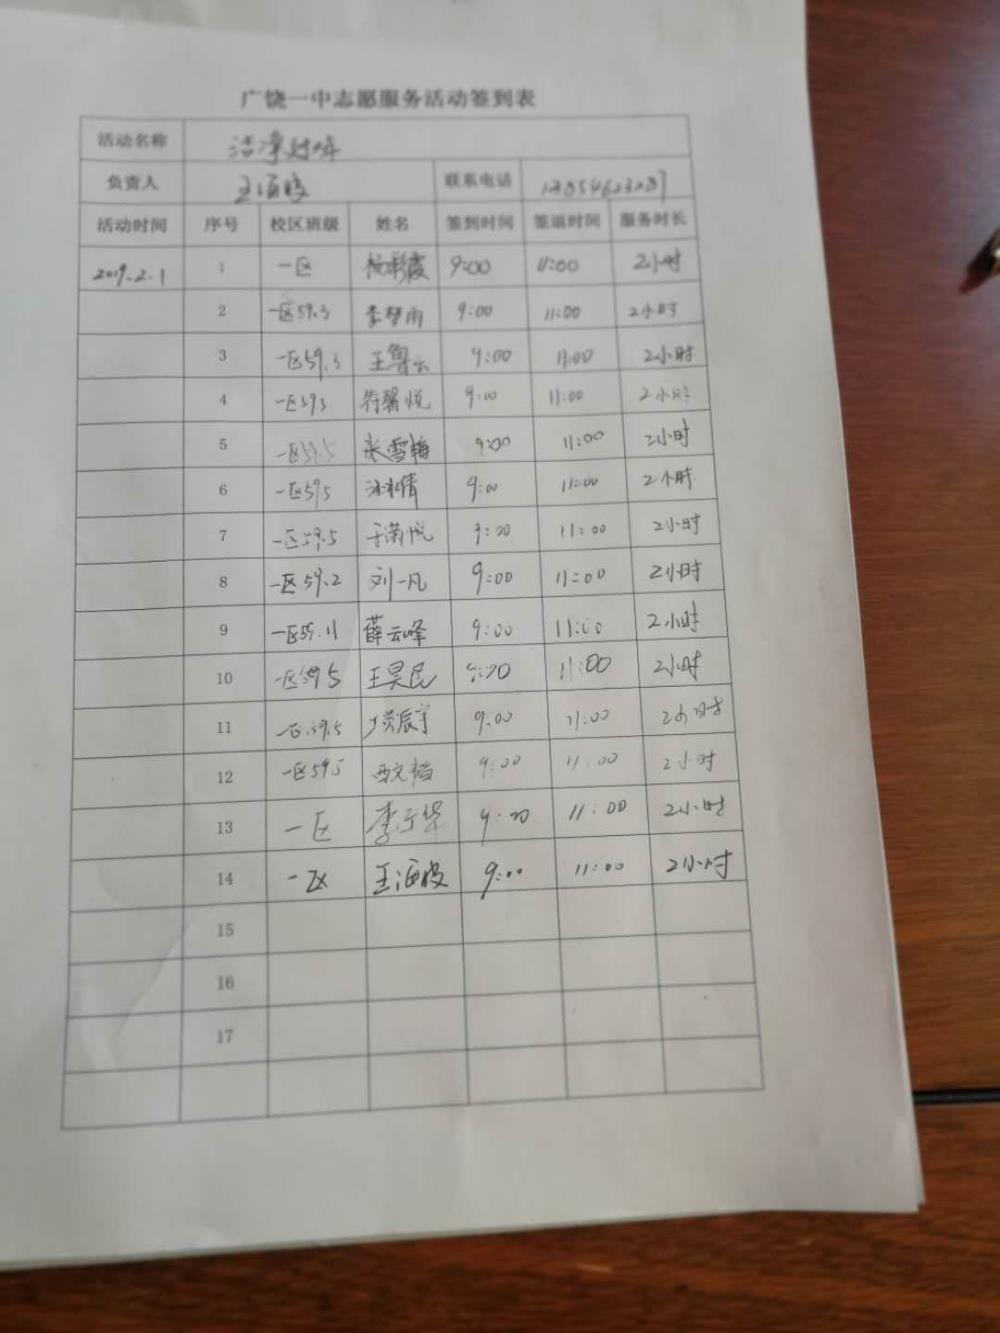 广饶一中志愿服务活动签到表
活动名称 洁净
负责人 王海波 联系电话
活动时间 序号 校区班级 姓名 签到时间 签退时间 服务时长
2019.2.1 1 一区 9:00 11:00 2小时
2 一区59.3 李梦雨 9:00 11:00 2小时
3 一区59.3 王鲁云 9:00 11:00 2小时
4 一区593 馨悦 9:00 11:00 2小时
5 一区59.5 张雪梅 9:00 11:00 2小时
6 一区595 倩 9:00 11:00 2小时
7 一区59.5 于潇悦 9:00 11:00 2小时
8 一区59.2 刘一凡 9:00 11:00 2小时
9 一区59.11 薛云峰 9:00 11:00 2小时
10 一区59.5 王昊民 9:00 11:00 2小时
11 一区59.5 辰宇 9:00 11:00 2小时
12 一区595 9:00 11:00 2小时
13 一区 李 9:00 11:00 2小时
14 一区 王海波 9:00 11:00 2小时
15
16
17